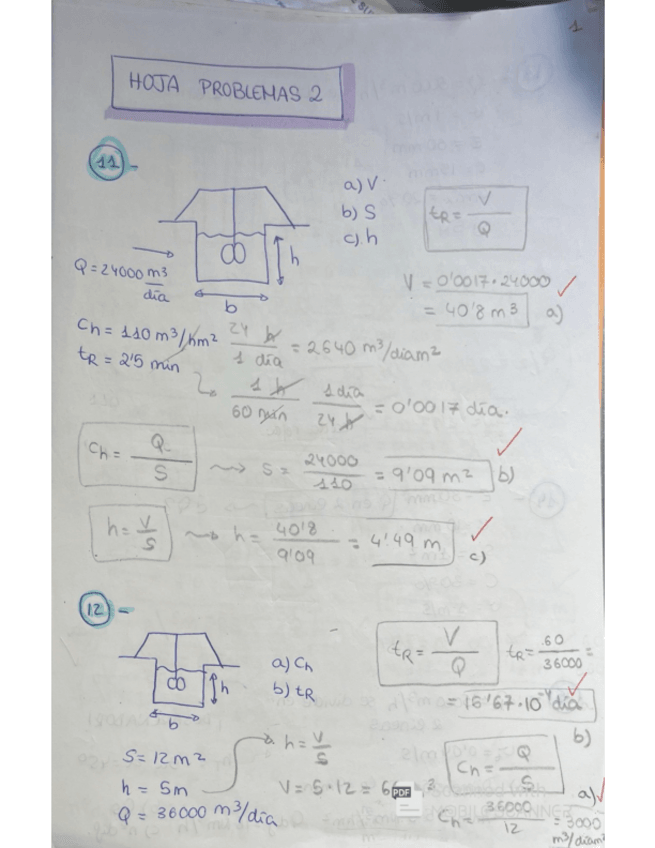 1
HOJA PROBLEMAS 2
11-
a) V
b) S
c) h
tR = V/Q
Q = 24000 m3/día
h
b
V = 0'0017 · 24000
= 40'8 m3 a)
Ch = 110 m3/hm2 24 h/1 día = 2640 m3/díam2
tR = 2'5 min
1 h/60 min 1 día/24 h = 0'0017 día.
Ch = Q/S
S = 24000/110 = 9'09 m2 b)
h = V/S
h = 40'8/9'09 = 4'49 m c)
12-
a) Ch
b) tR
h
b
tR = V/Q
tR = 60/36000 =
= 16'67·10-4 día
b)
S = 12 m2
h = 5m
Q = 36000 m3/día
h = V/S
V = 5·12 =
PDF
3
Ch = Q/S
a)
Ch = 36000/12 = 3000
m3/díam2